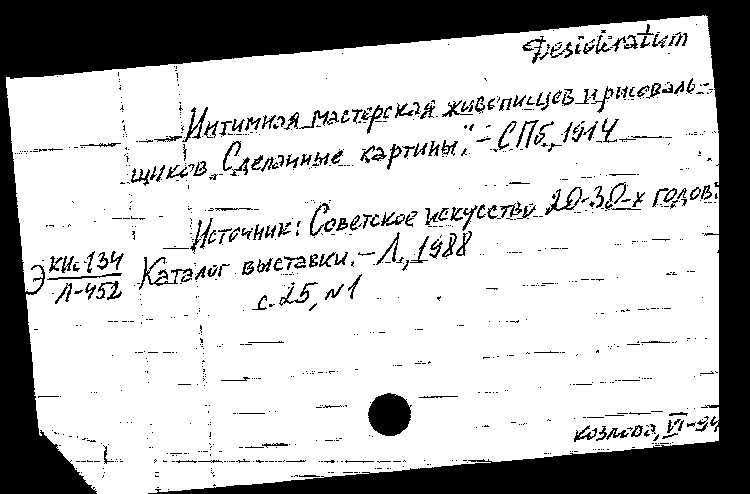 Desideratum
Интимная мастерская живописцев и рисоваль-
щиков „Сделанные картины". – СПб, 1914
Источник: Советское искусство 20-30-х годов:
Э КИс-134 Каталог выставки. – Л., 1988
Л-452
с. 25, №1
Козлова, VI-94